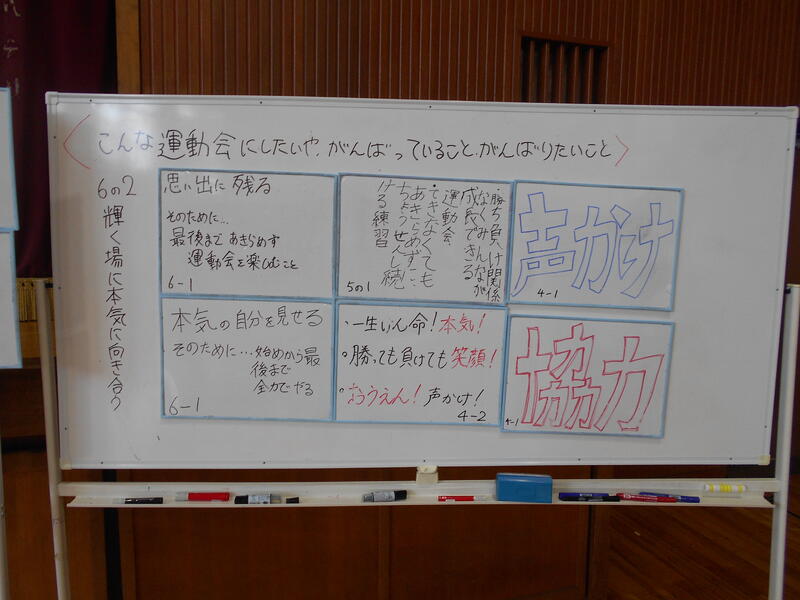 こんな運動会にしたいや、がんばっていること、がんばりたいこと
6の2
輝く場に本気に向き合う
思い出に残る
そのために…
最後まであきらめず
運動会を楽しむこと
6-1
・勝ち負け関係
なくみんなが
成長できる
運動会
・できなくても
あきらめずに
ちょうせんし続
ける練習
5の1
声かけ
4-1
本気の自分を見せる
そのために…始めから最
後まで
全力でやる
6-1
・一生けん命!本気!
・勝っても負けても笑顔!
・おうえん!声かけ!
4-2
協力
4-1